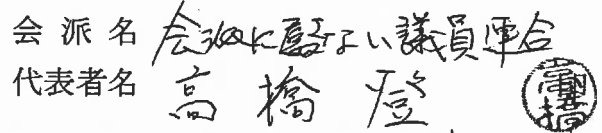 会派名 会派に属さない議員連合
代表者名 高橋登
高橋